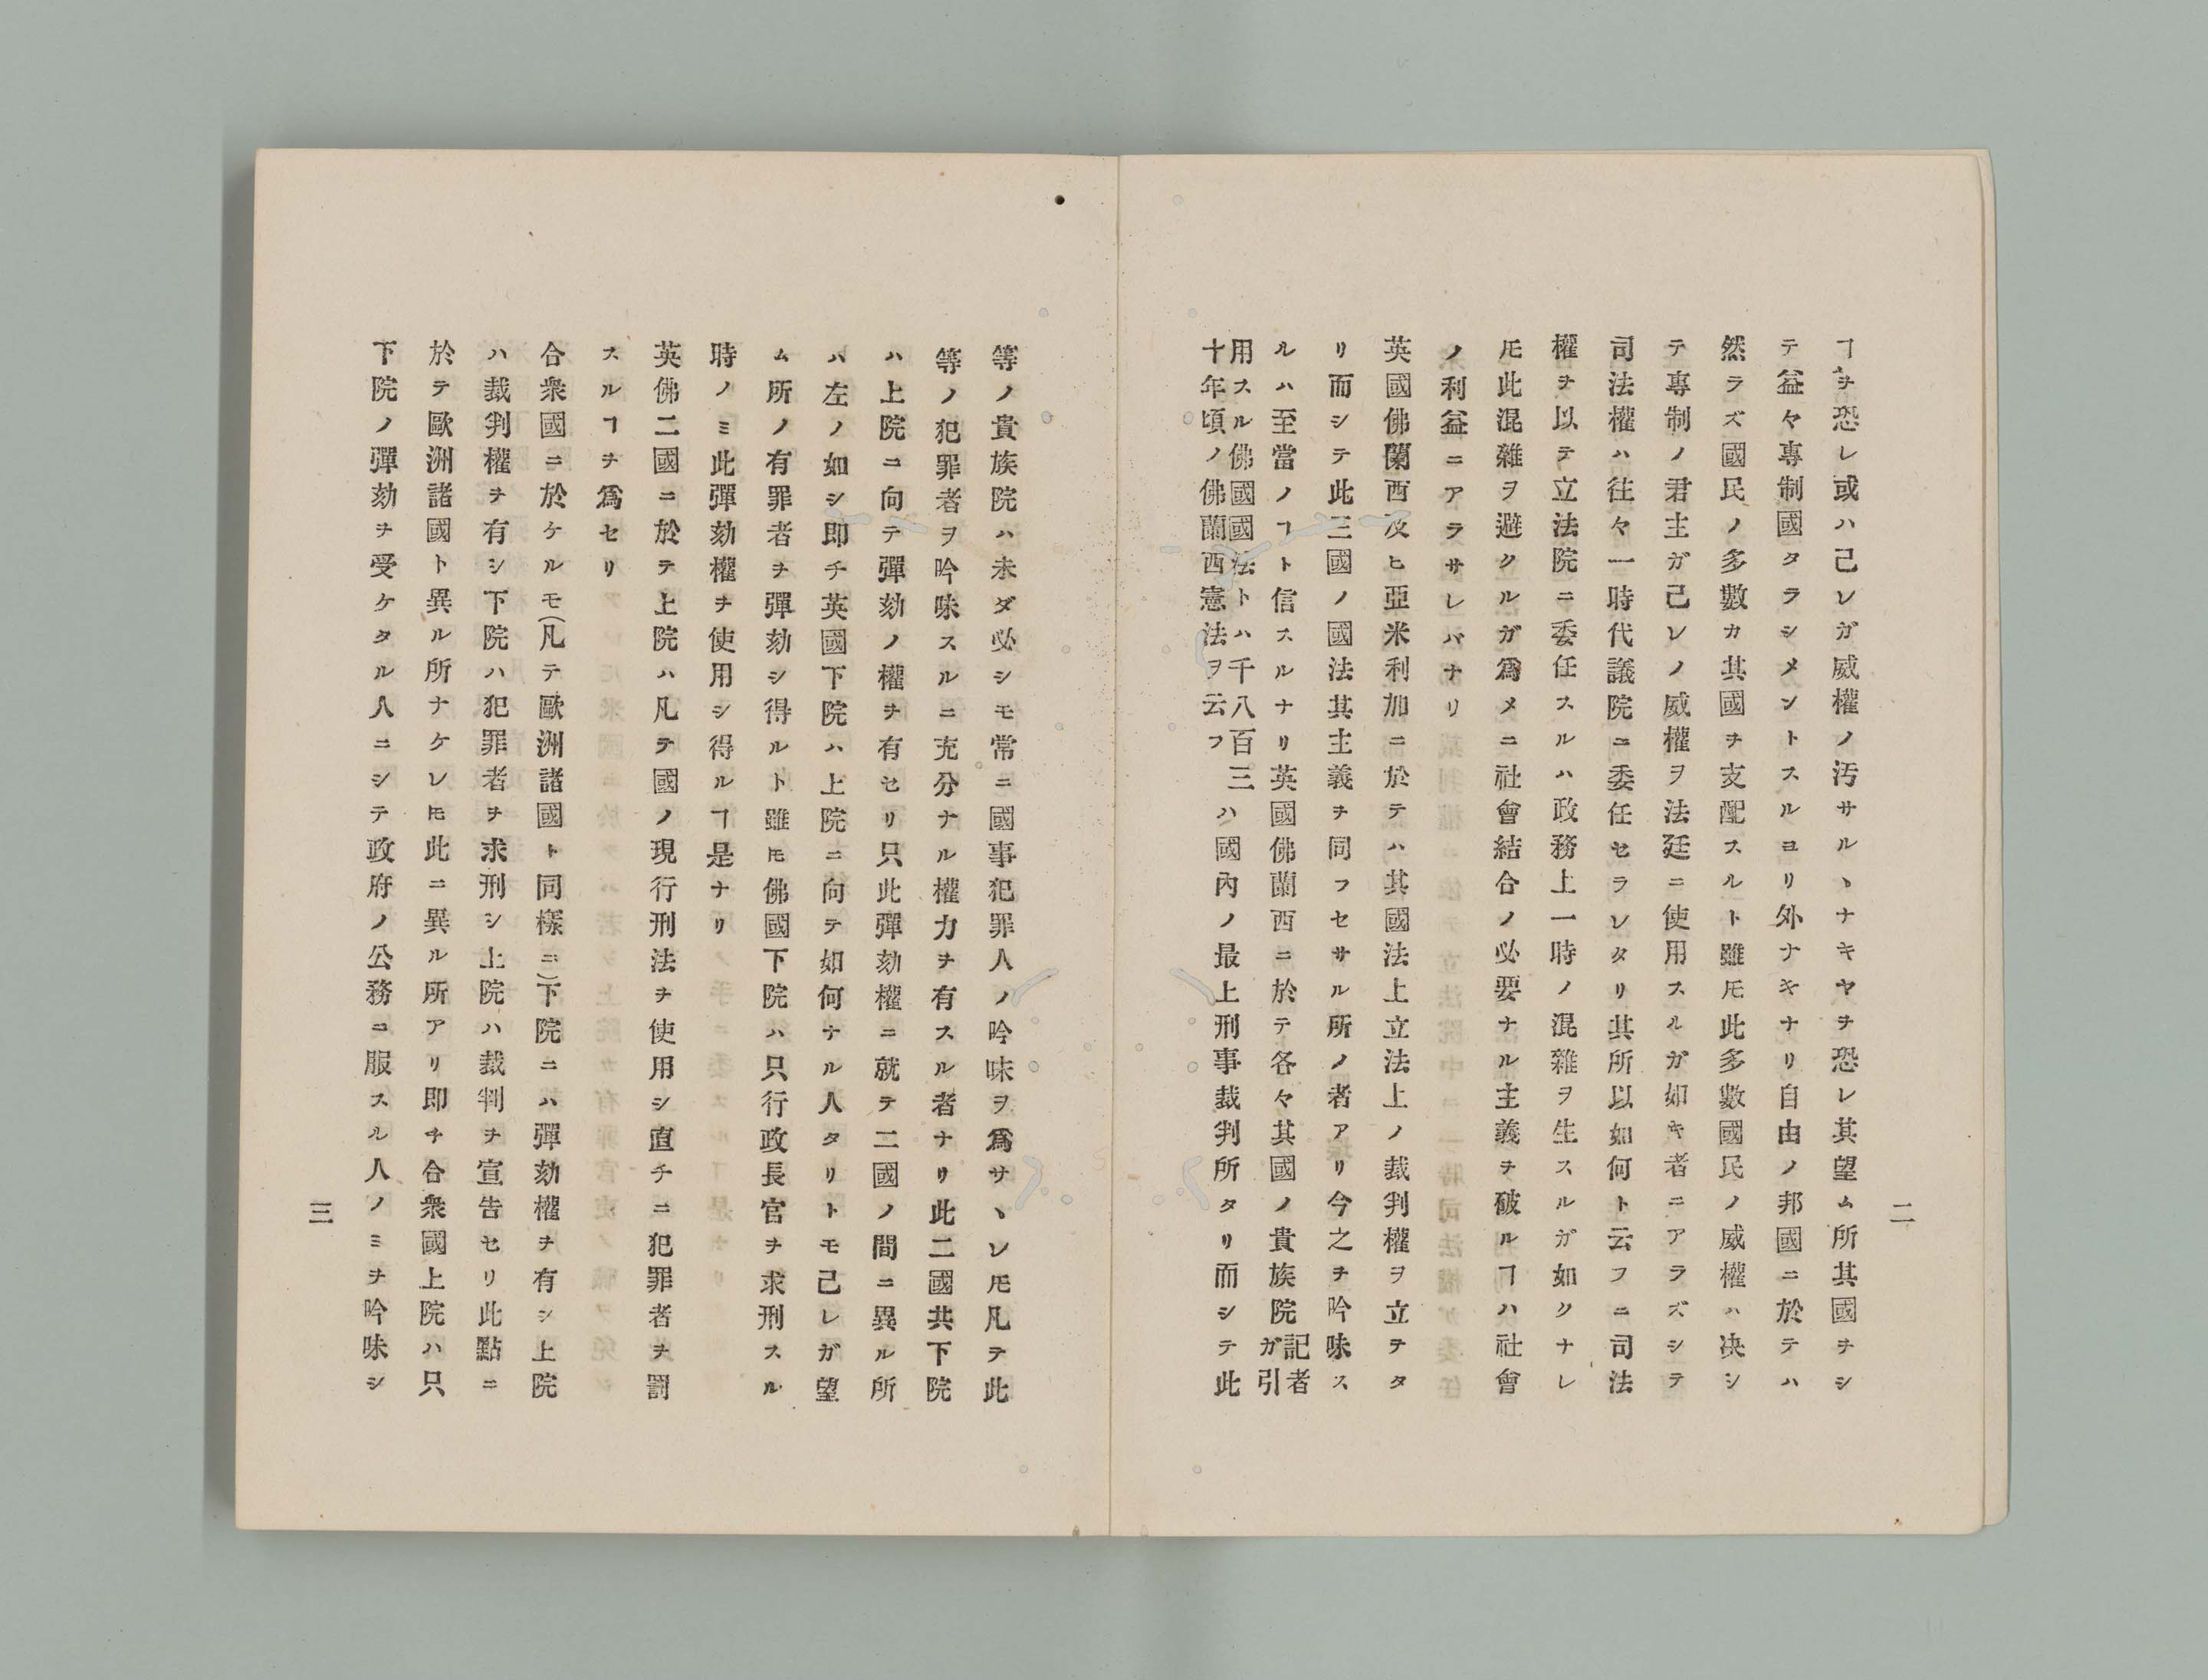 二
ヿヲ恐レ或ハ己レガ威權ノ汚サルヽナキヤヲ恐レ其望ム所其國ヲシ
テ益々專制國タラシメントスルヨリ外ナキナリ自由ノ邦國ニ於テハ
然ラズ國民ノ多數カ其國ヲ支配スルト雖𪜈此多數國民ノ威權ハ决シ
テ專制ノ君主ガ己レノ威權ヲ法廷ニ使用スルガ如キ者ニアラズシテ
司法權ハ往々一時代議院ニ委任セラレタリ其所以如何ト云フニ司法
權ヲ以テ立法院ニ委任スルハ政務上一時ノ混雜ヲ生スルガ如クナレ
𪜈此混雜ヲ避クルガ爲メニ社會結合ノ必要ナル主義ヲ破ルヿハ社會
ノ利益ニアラサレバナリ
英國佛蘭西及ヒ亞米利加ニ於テハ其國法上立法上ノ裁判權ヲ立テタ
リ而シテ此三國ノ國法其主義ヲ同フセサル所ノ者アリ今之ヲ吟味ス
ルハ至當ノヿト信スルナリ英國佛蘭西ニ於テ各々其國ノ貴族院記者ガ引
用スル佛國國法トハ千八百三十年頃ノ佛蘭西憲法ヲ云フハ國內ノ最上刑事裁判所タリ而シテ此
等ノ貴族院ハ未ダ必シモ常ニ國事犯罪人ノ吟味ヲ爲サヽレ𪜈凡テ此
等ノ犯罪者ヲ吟味スルニ充分ナル權力ヲ有スル者ナリ此二國共下院
ハ上院ニ向テ彈劾ノ權ヲ有セリ只此彈劾權ニ就テ二國ノ間ニ異ル所
ハ左ノ如シ即チ英國下院ハ上院ニ向テ如何ナル人タリトモ己レガ望
ム所ノ有罪者ヲ彈劾シ得ルト雖𪜈佛國下院ハ只行政長官ヲ求刑スル
時ノミ此彈劾權ヲ使用シ得ルヿ是ナリ
英佛二國ニ於テ上院ハ凡テ國ノ現行刑法ヲ使用シ直チニ犯罪者ヲ罰
スルヿヲ爲セリ
合衆國ニ於ケルモ(凡テ歐洲諸國ト同樣ニ)下院ニハ彈劾權ヲ有シ上院
ハ裁判權ヲ有シ下院ハ犯罪者ヲ求刑シ上院ハ裁判ヲ宣告セリ此點ニ
於テ歐洲諸國ト異ル所ナケレ𪜈此ニ異ル所アリ即チ合衆國上院ハ只
下院ノ彈劾ヲ受ケタル人ニシテ政府ノ公務ニ服スル人ノミヲ吟味シ
三